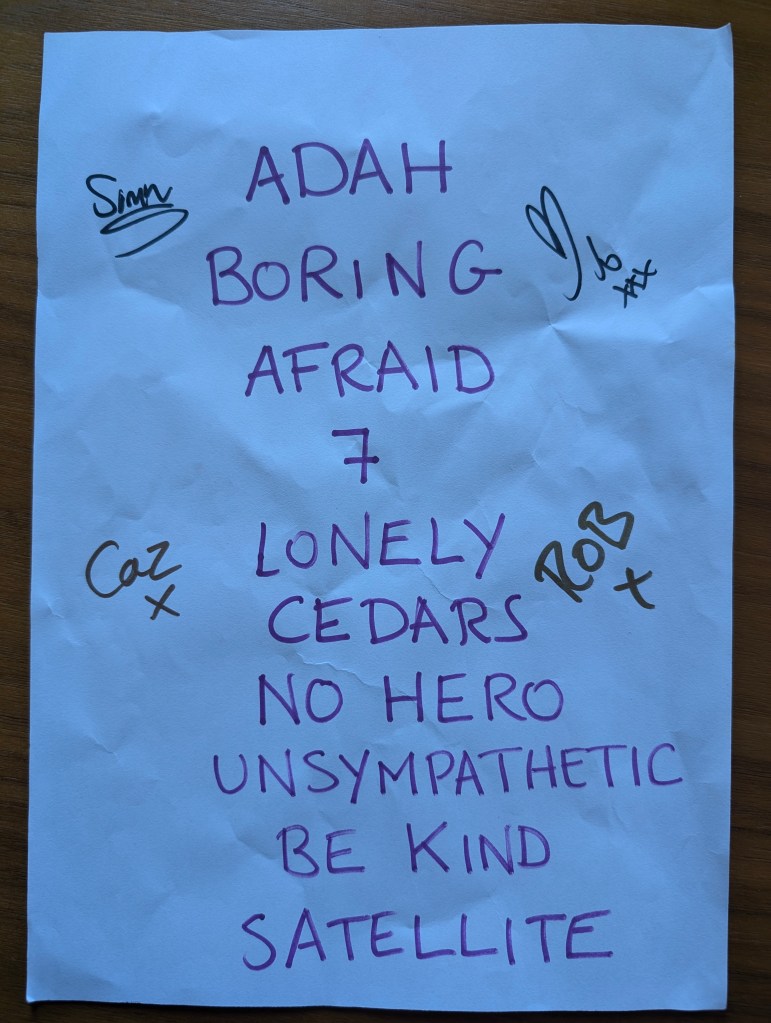 ADAH
Simn
BORING
AFRAID
7
LONELY
Caz
x
ROB
x
CEDARS
NO HERO
UNSYMPATHETIC
BE KIND
SATELLITE